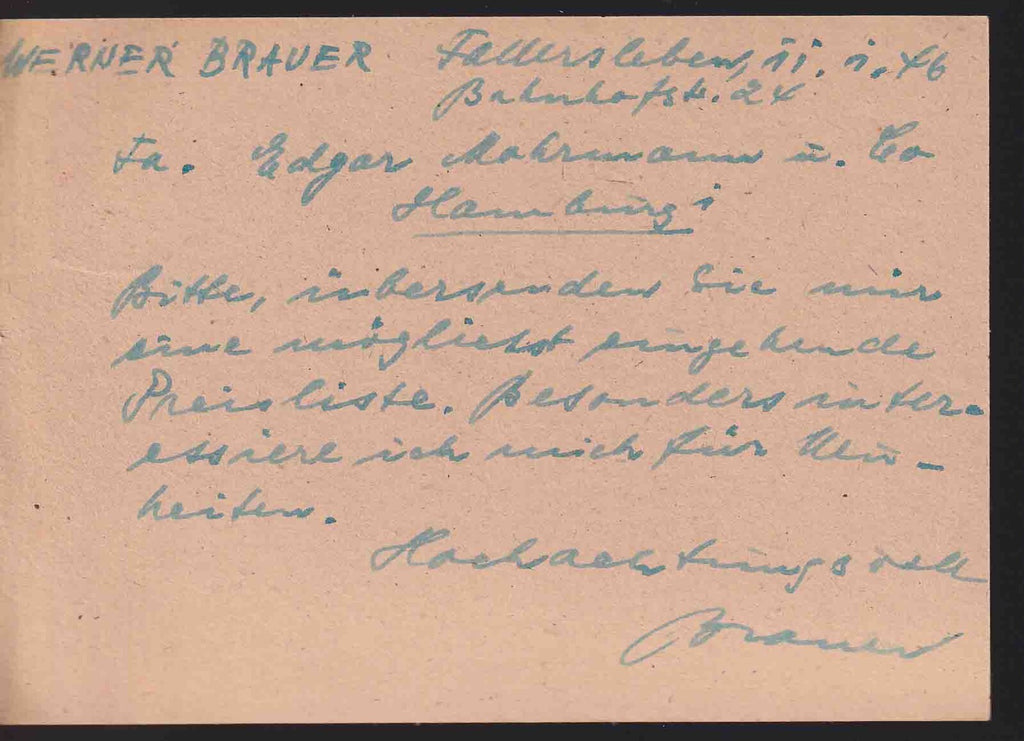 WERNER BRAUER Fallersleben, 11. 1. 46
Bahnhofstr. 24
Fa. Edgar Mohrmann u. Co
Hamburg 1
Bitte, übersenden Sie mir
eine möglichst eingehende
Preisliste. Besonders inter-
essiere ich mich für Neu-
heiten.
Hochachtungsvoll
Brauer